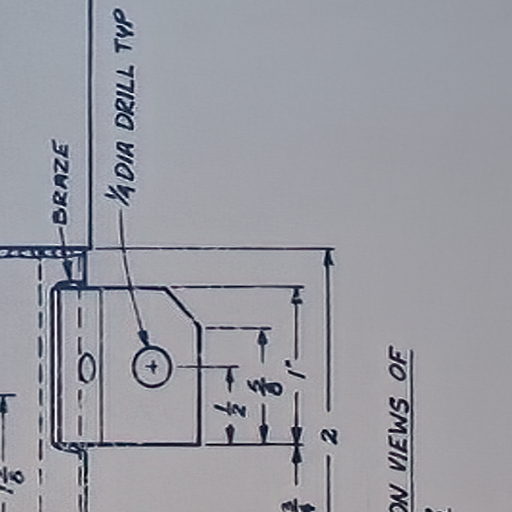 BRAZE
1/4 DIA DRILL TYP
1/2
5/8
1"
2
1 1/8
3/4
ON VIEWS OF